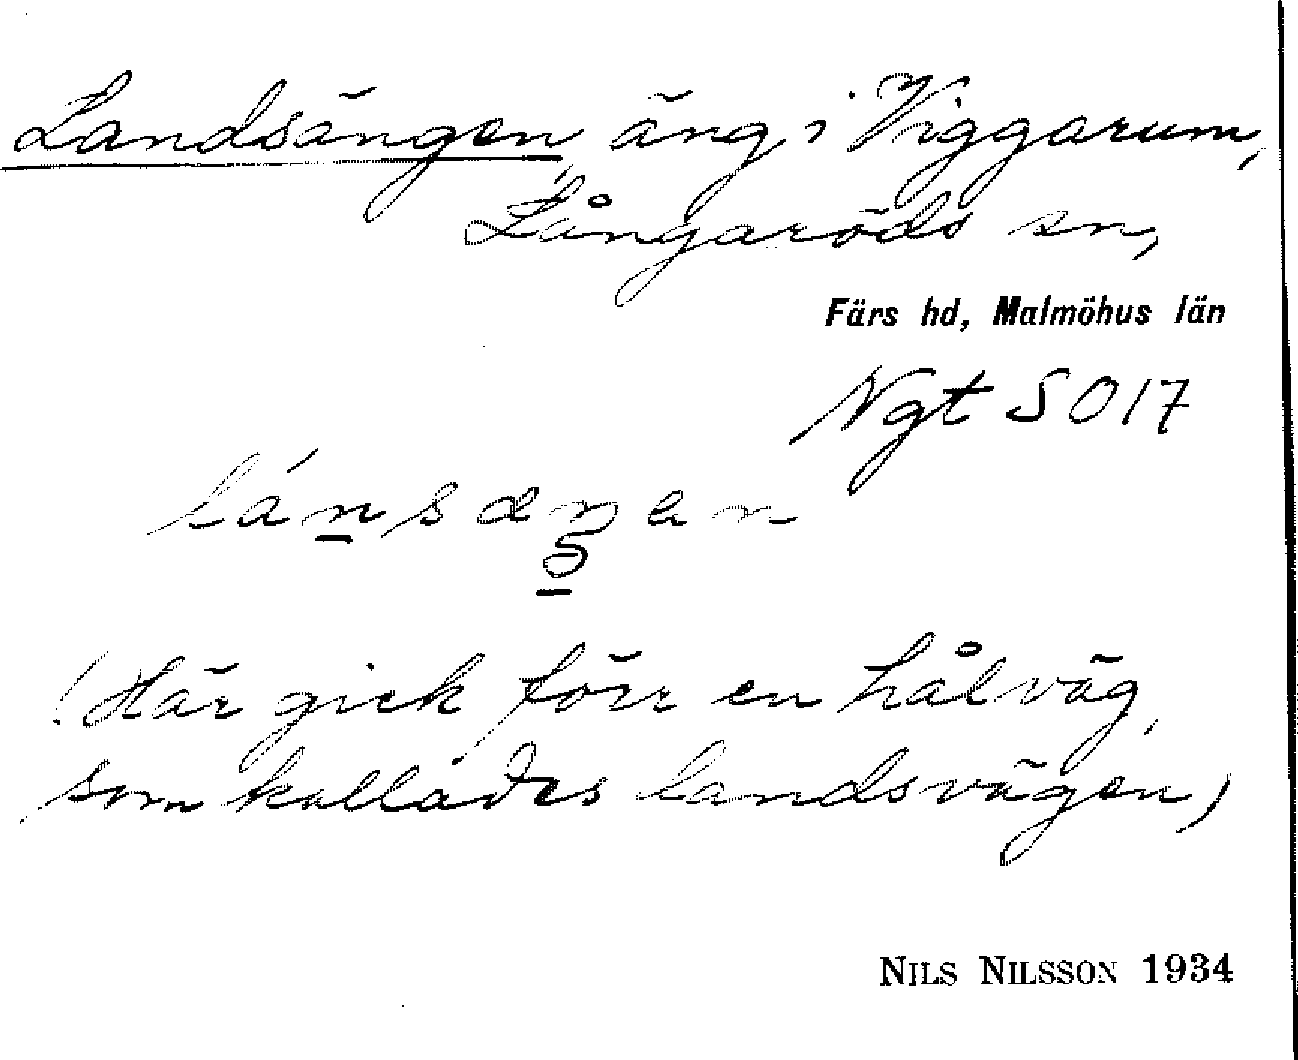 Landsängen, äng i Viggarum,
Långaröds sn,
Färs hd, Malmöhus län
Ngt S 017
(Här gick förr en hålväg,
som kallades landsvägen)
NILS NILSSON 1934